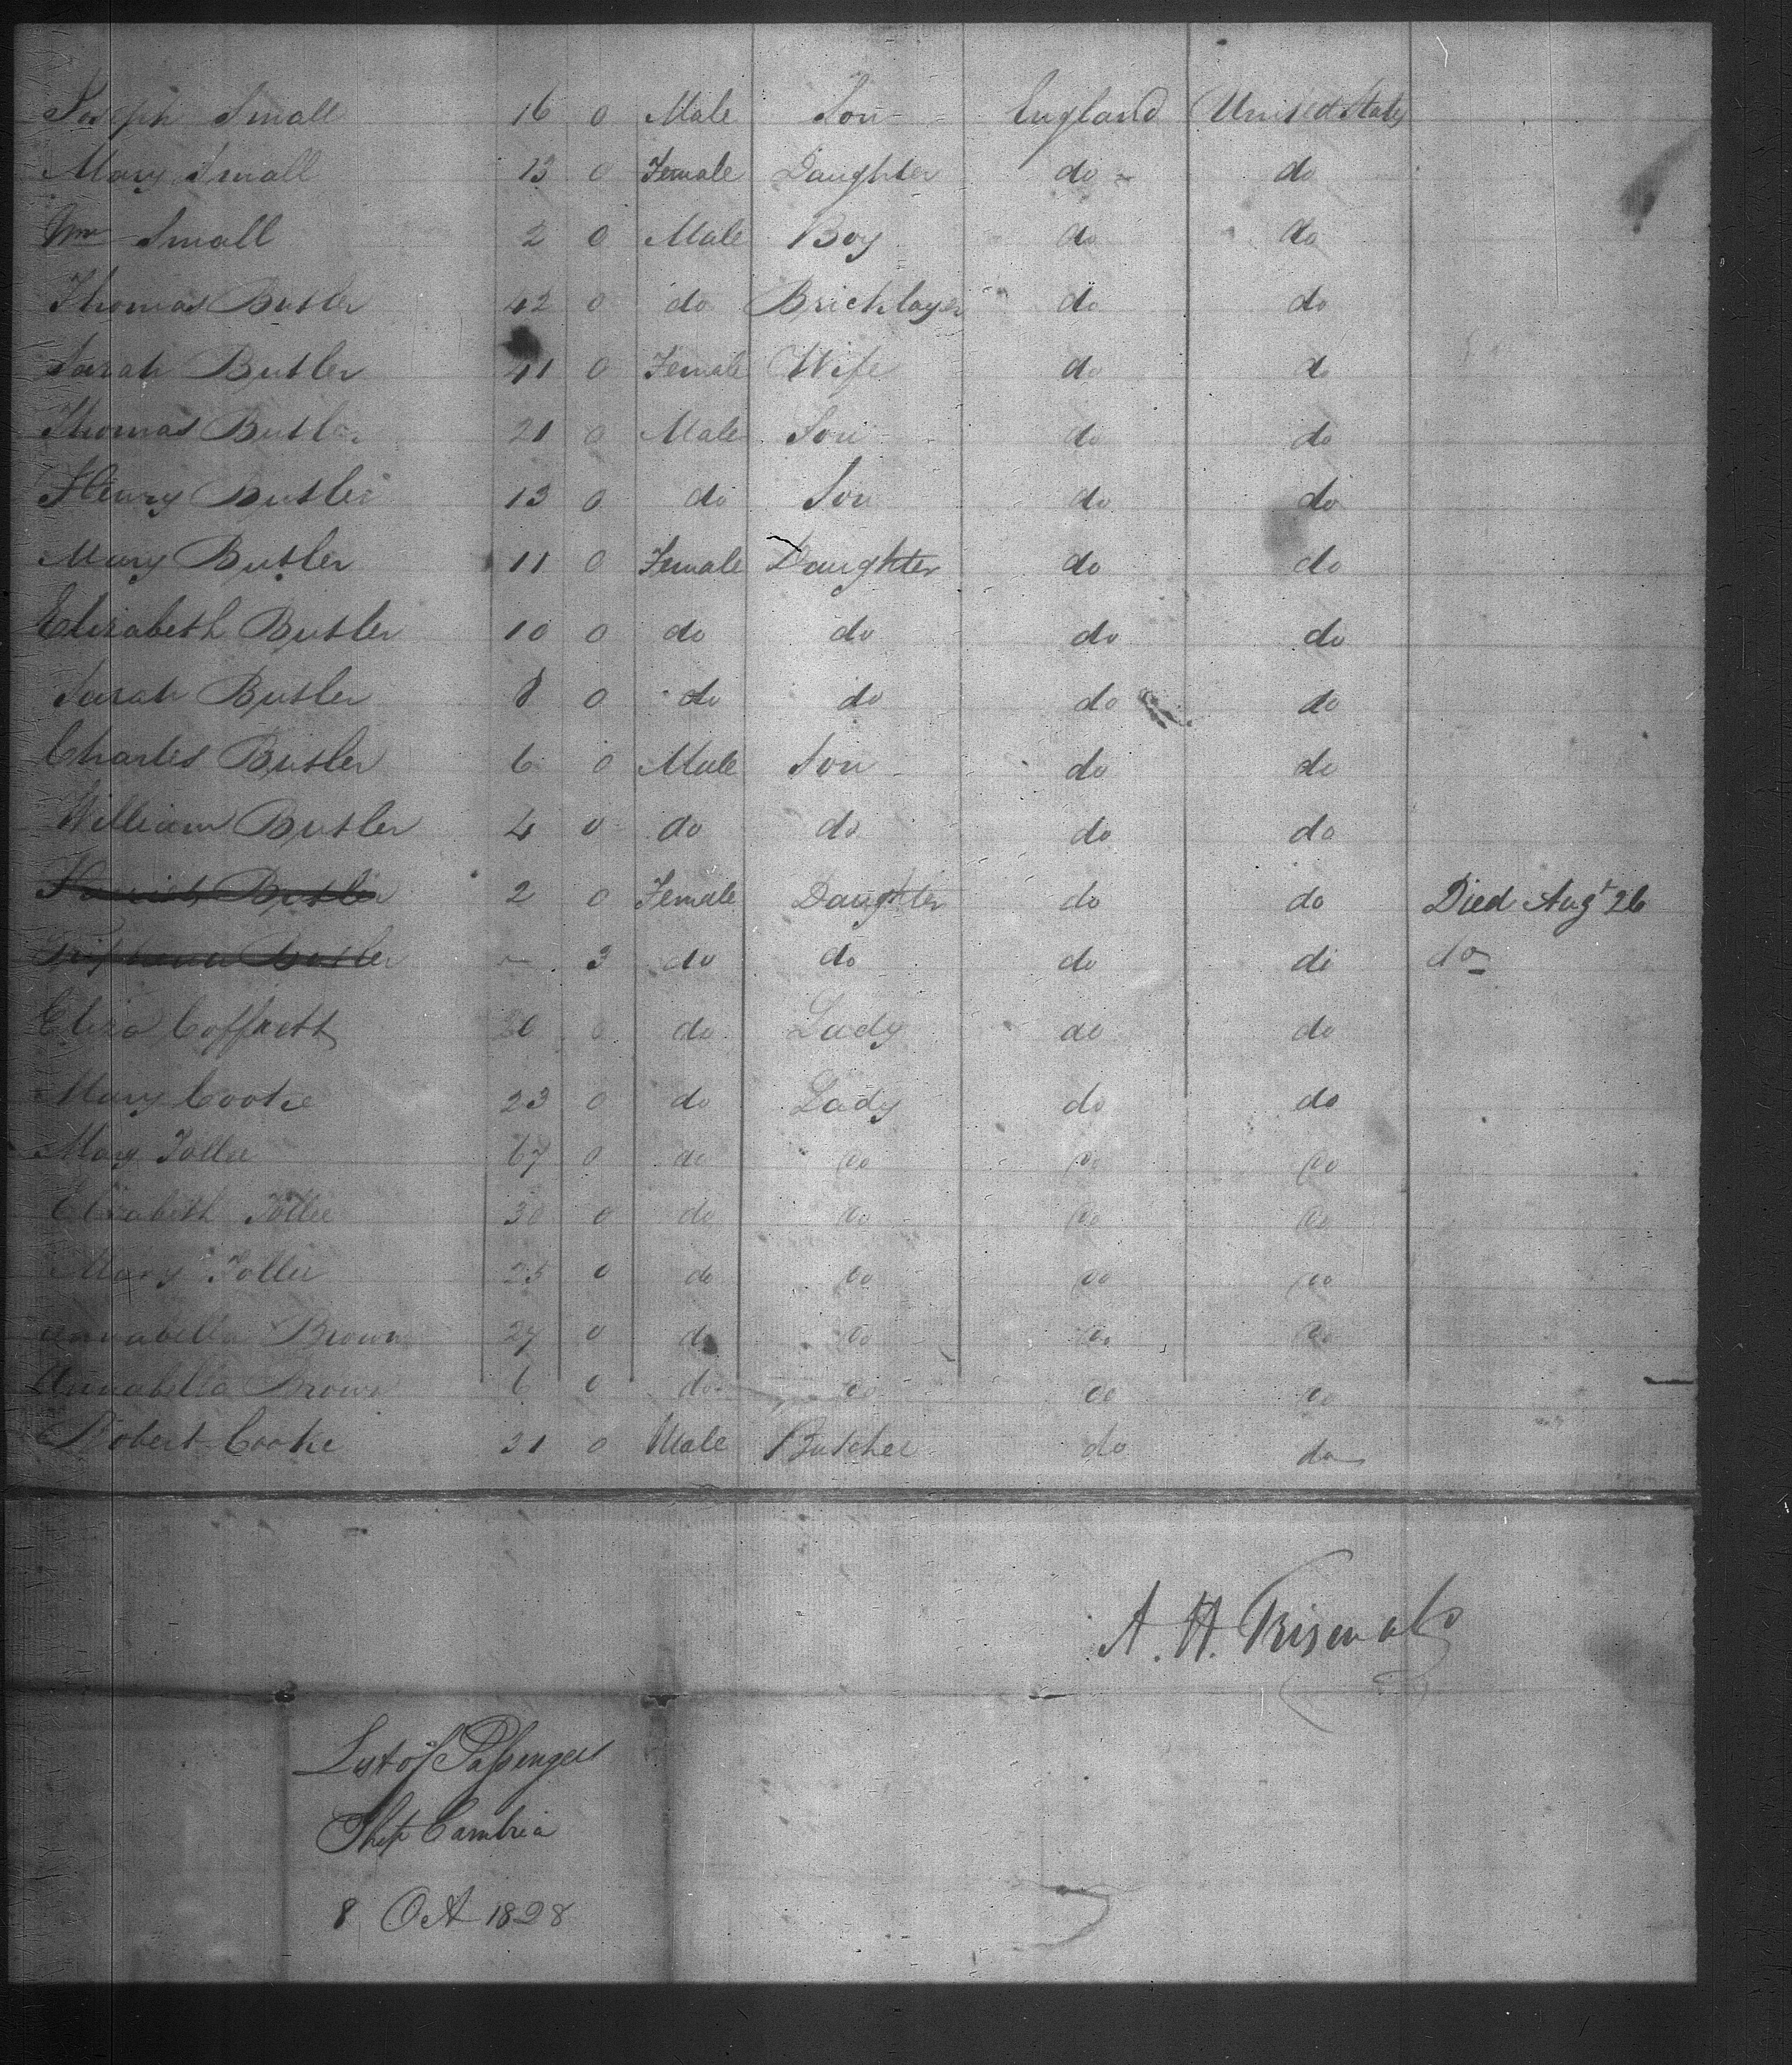 Joseph Small 16 0 Male Son England United States
Mary Small 13 0 Female Daughter do do
Wm Small 2 0 Male Boy do do
Thomas Butler 42 0 do Bricklayer do do
Sarah Butler 41 0 Female Wife do do
Thomas Butler 21 0 Male Son do do
Henry Butler 13 0 do Son do do
Mary Butler 11 0 Female Daughter do do
Elizabeth Butler 10 0 do do do do
Sarah Butler 8 0 do do do do
Charles Butler 6 0 Male Son do do
William Butler 4 0 do do do do
Harriet Butler 2 0 Female Daughter do do Died Augt 26
Butler 3 do do do do do
Eliza 0 do Lady do do
Mary Cooke 23 0 do Lady do do
Mary 67 0 do do do do
Elizabeth 30 0 do do do do
Mary 0 do do do do
Annabella Brown 27 0 do do do do
Annabella Brown 6 0 do do do do
Robert Cooke 0 Male Butcher do do
A. H.
List of Passengers
Ship Cambria
8 Oct 1828